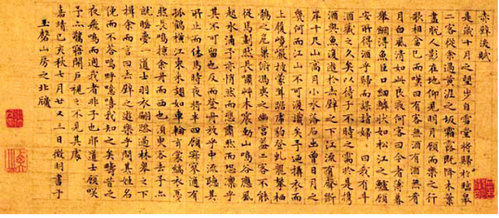 赤壁後賦
是歲十月之望步自雪堂將歸於臨皋
二客從余過黃泥之坂霜露既降木葉
盡脫人影在地仰見明月顧而樂之行
歌相答已而嘆曰有客無酒有酒無肴
月白風清如此良夜何客曰今者薄暮
舉網得魚巨口細鱗狀如松江之鱸顧
安所得酒乎歸而謀諸婦婦曰我有斗
酒藏之久矣以待子不時之需於是攜
酒與魚復遊於赤壁之下江流有聲斷
岸千尺山高月小水落石出曾日月之
幾何而江山不可復識矣予乃攝衣而
上履巉巖披蒙茸踞虎豹登虬龍攀棲
鶻之危巢俯馮夷之幽宮蓋二客不能
從焉劃然長嘯草木震動山鳴谷應風
起水涌予亦悄然而悲肅然而恐凜乎
其不可留也反而登舟放乎中流聽其
所止而休焉時夜將半四顧寂寥適有
孤鶴橫江東來翅如車輪玄裳縞衣戛
然長鳴掠余舟而西也須臾客去予亦
就睡夢一道士羽衣蹁躚過臨皋之下
揖余而言曰赤壁之遊樂乎問其姓名
俛而不答嗚呼噫嘻我知之矣疇昔之
夜飛鳴而過我者非子也耶道士顧笑
予亦驚寤開戶視之不見其處
嘉靖己亥秋七月廿又三日徵明書于
玉磬山房之北牖